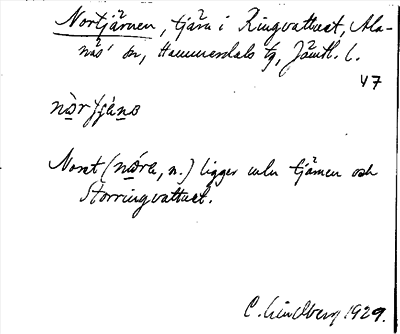 Nortjärnen, tjärn i Ringvattnet, Ala-
näs' sn, Hammerdals tg, Jämtl. l.
47
Noret (          n.) ligger mln tjärnen och
Storringvattnet.
C. Lindberg 1929.